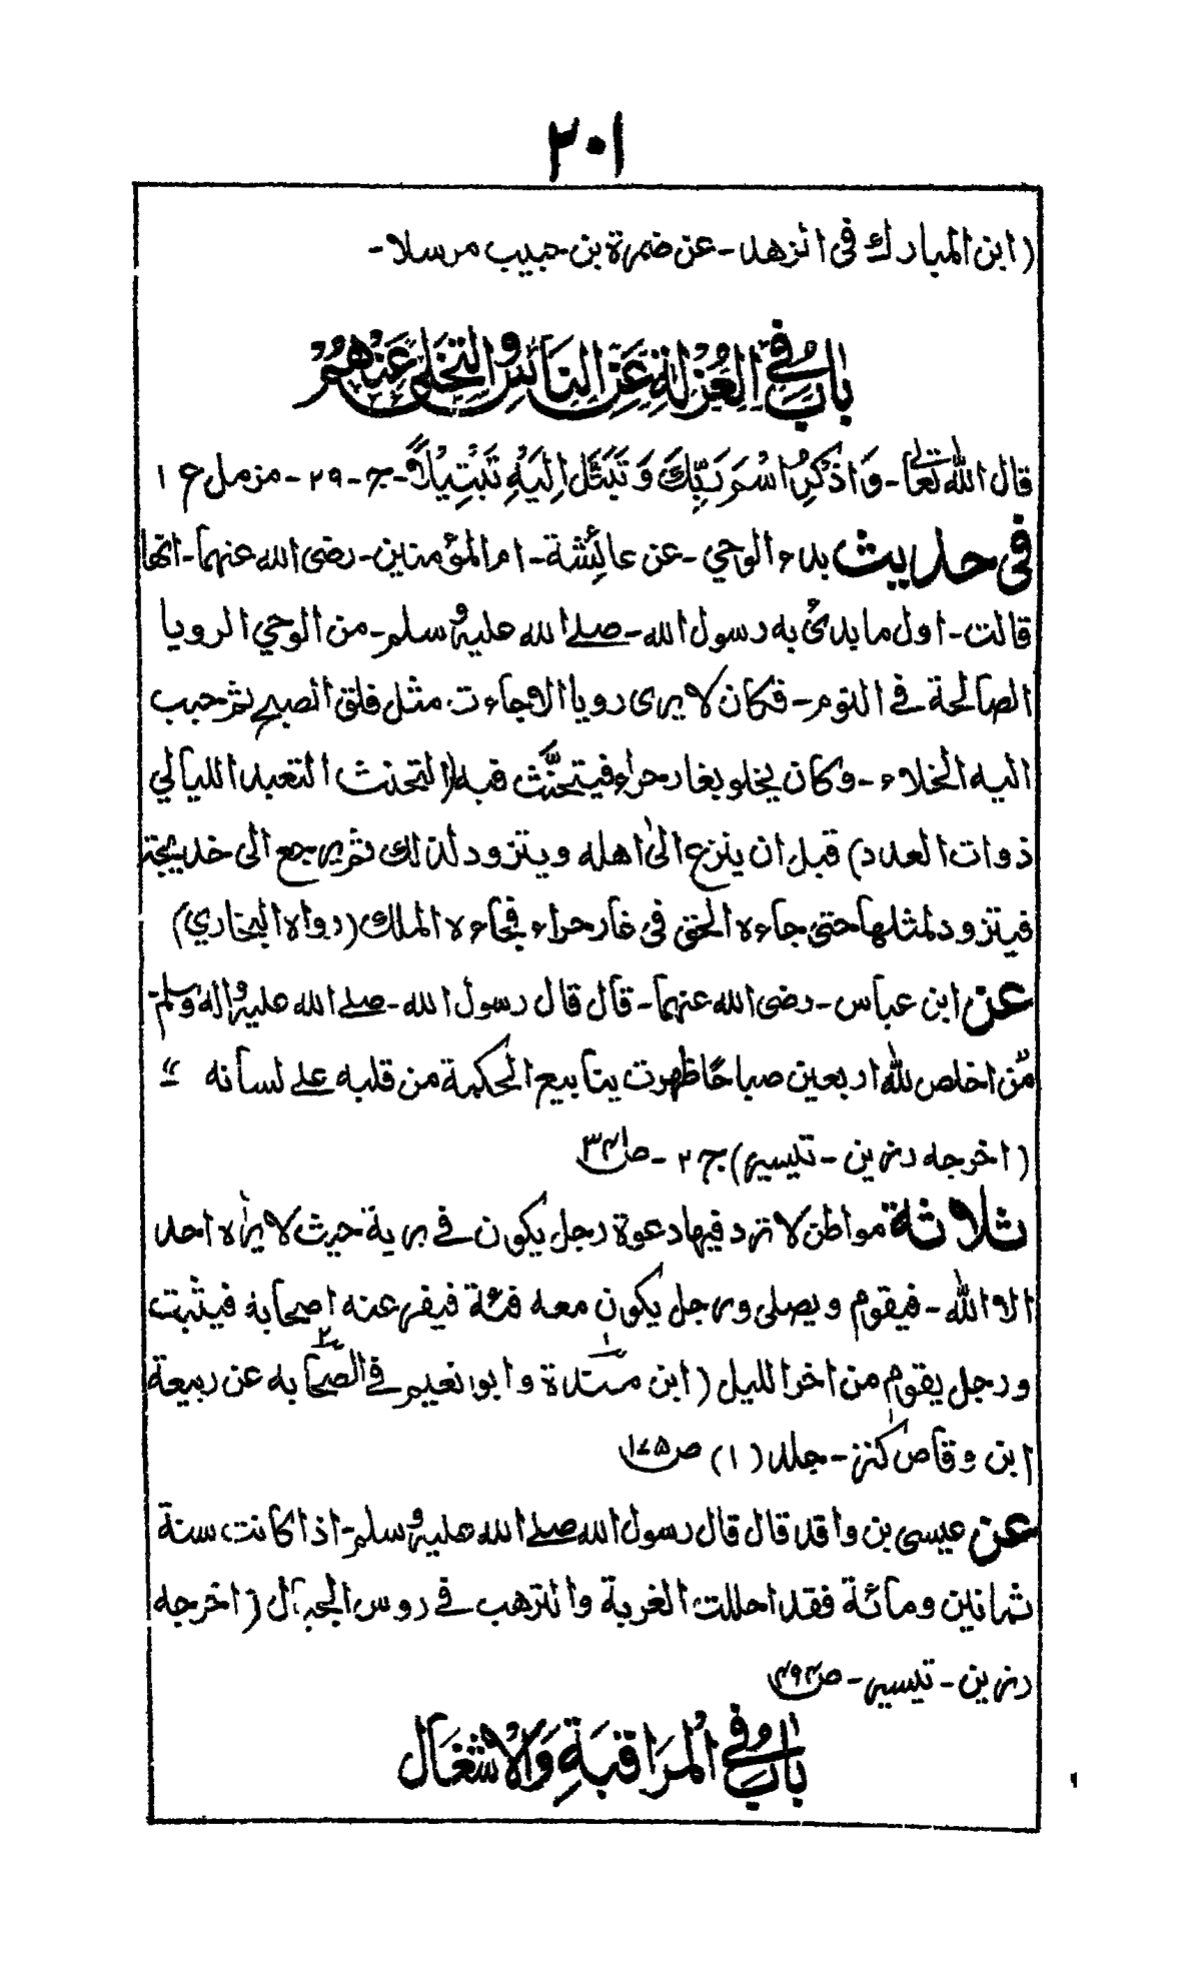 ٢٠١
(ابن المبارك فى الزهد - عن ضمرة بن حبيب مرسلا -
بَابٌ فِي الْعُزْلَةِ عَنِ النَّاسِ وَالتَّخَلِّي عَنْهُمْ
قال الله تعالى - وَاذْكُرِ اسْمَ رَبِّكَ وَتَبَتَّلْ اِلَيْهِ تَبْتِيْلًا - ج - ٢٩ - مزمل ع ١
فى حديث بدء الوحي - عن عائشة - ام المؤمنين - رضى الله عنهما - انها
قالت - اول ما بدئ به رسول الله - صلے الله عليه وسلم - من الوحي الرويا
الصالحة في النوم - فكان لا يرى رويا الا جاءت مثل فلق الصبح ثم حبب
اليه الخلاء - وكان يخلو بغار حراء فيتحنَّث فيه (التحنث التعبد الليالي
ذوات العدد) قبل ان ينزع الىٰ اهله ويتزود لذلك ثم يرجع الى خديجة
فيتزود لمثلها حتى جاءه الحق فى غار حراء فجاءه الملك (رواه البخاري)
عن ابن عباس - رضى الله عنهما - قال قال رسول الله - صلے الله عليه واله وسلم -
مّن اخلص لله اربعين صباحًا ظهرت ينابيع الحكمة من قلبه علے لسانه "
(اخرجه رزين - تيسير) ج ٢ - ص٣٤١
ثلاثة مواطن لا ترد فيها دعوة رجل يكون في برية حيث لا يراه احد
الا الله - فيقوم ويصلى ورجل يكون معه فئة فيفر عنه اصحابه فيثبت
ورجل يقوم من اخر الليل (ابن مندة وابو نعيم في الصحابه عن ربيعة
ابن وقاص كنز - جلد (١) ص١٧٥
عن عيسى بن واقد قال قال رسول الله صلے الله عليه وسلم - اذا كانت سنة
ثمانين ومائة فقد احللت الغربة والترهب في روس الجبال (اخرجه
رزين - تيسير - ص٤٩٤
بَابٌ فِي الْمُرَاقَبَةِ وَالْاَشْغَالِ